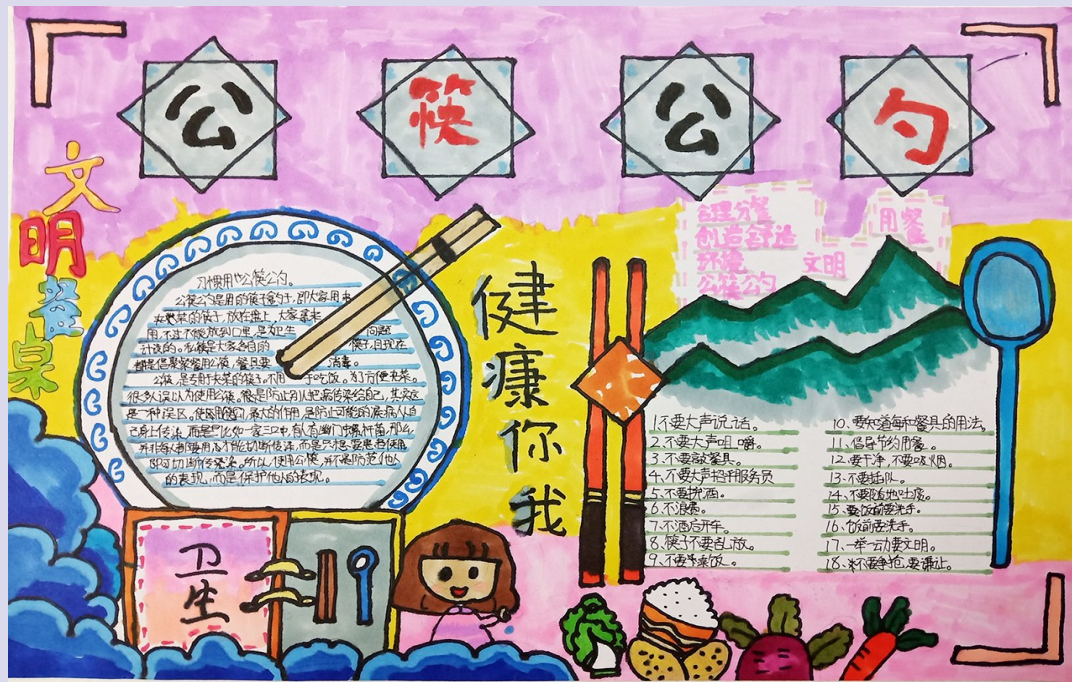 公筷公勺
文明餐桌
合理分餐
创造舒适
环境
公筷公勺
用餐
文明
健康你我
习惯用公筷公勺。
公筷公勺是用的筷子含勺子,即大家用
夹菜的筷子,放在盘上,大家
用,不过不能放到口里,是为卫生 问题
计设的。私筷是大家各自的 筷子,目现在
都是倡聚餐用公筷, 消毒。
公筷,是专用于夹菜的筷子。不用于吃饭。为了方便夹菜。
很多人误以为使用公筷。是防止别人把病传染给自己,其实这
是一种误区。使用公筷,最大的作用,是防止可能的疾病从自
己身上传染,而是“比如一家三口中,有人有幽门螺杆菌,那么
并非每人都要用公筷才能切断传染,而是只想要患者使用
即可切断传染源。所以,使用公筷,并不是防范他人
的表现,而是保护他人的表现。
卫生
1.不要大声说话。
2.不要大声咀嚼。
3.不要敲餐具。
4.不要大声招呼服务员
5.不要拼酒。
6.不浪费。
7.不酒后开车。
8.筷子不要乱放。
9.不要 饭。
10.要知道每种餐具的用法。
11.倡导节约用餐。
12.要干净,不要吸烟。
13.不要插队。
14.不要随地吐痰。
15.要饭前要洗手。
16.饭前要洗手。
17.一举一动要文明。
18. 不要争抢,要谦让。